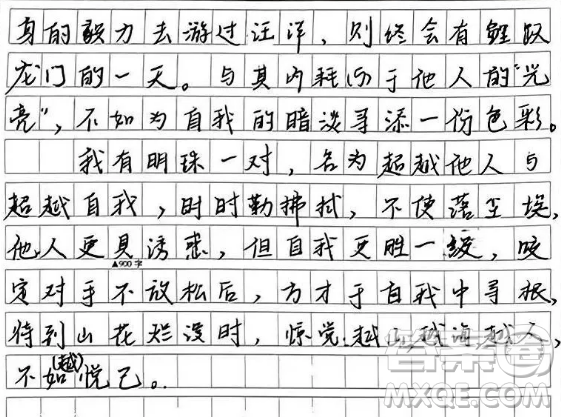 身的毅力去游过汪洋，则终会有鲤跃
龙门的一天。与其内耗于他人的“光
亮”，不如为自我的暗淡寻添一份色彩。
我有明珠一对，名为超越他人与
超越自我，时时勤拂拭，不使落尘埃，
他人更具诱惑，但自我更胜一级，咬
▲900字
定对手不放松后，方才于自我中寻根，
待到山花烂漫时，惊觉：越山越海越人，
不如(越)悦己。
答案圈
MXQE.COM